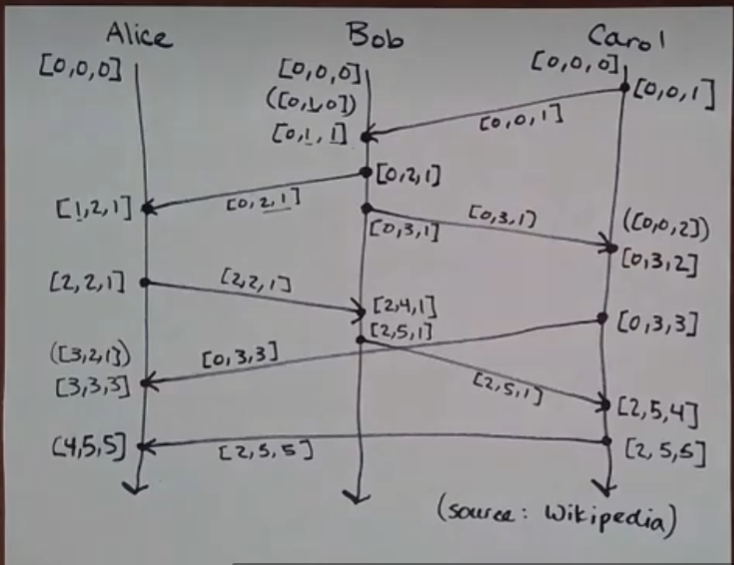 Alice Bob Carol
[0,0,0] [0,0,0] [0,0,0]
[0,0,1]
([0,1,0])
[0,0,1]
[0,1,1]
[0,2,1]
[0,2,1]
[1,2,1]
[0,3,1]
[0,3,1]
([0,0,2])
[0,3,2]
[2,2,1]
[2,2,1]
[2,4,1]
[0,3,3]
[2,5,1]
([3,2,1])
[0,3,3]
[3,3,3]
[2,5,1]
[2,5,4]
(4,5,5]
[2,5,5]
[2,5,5]
(source: Wikipedia)